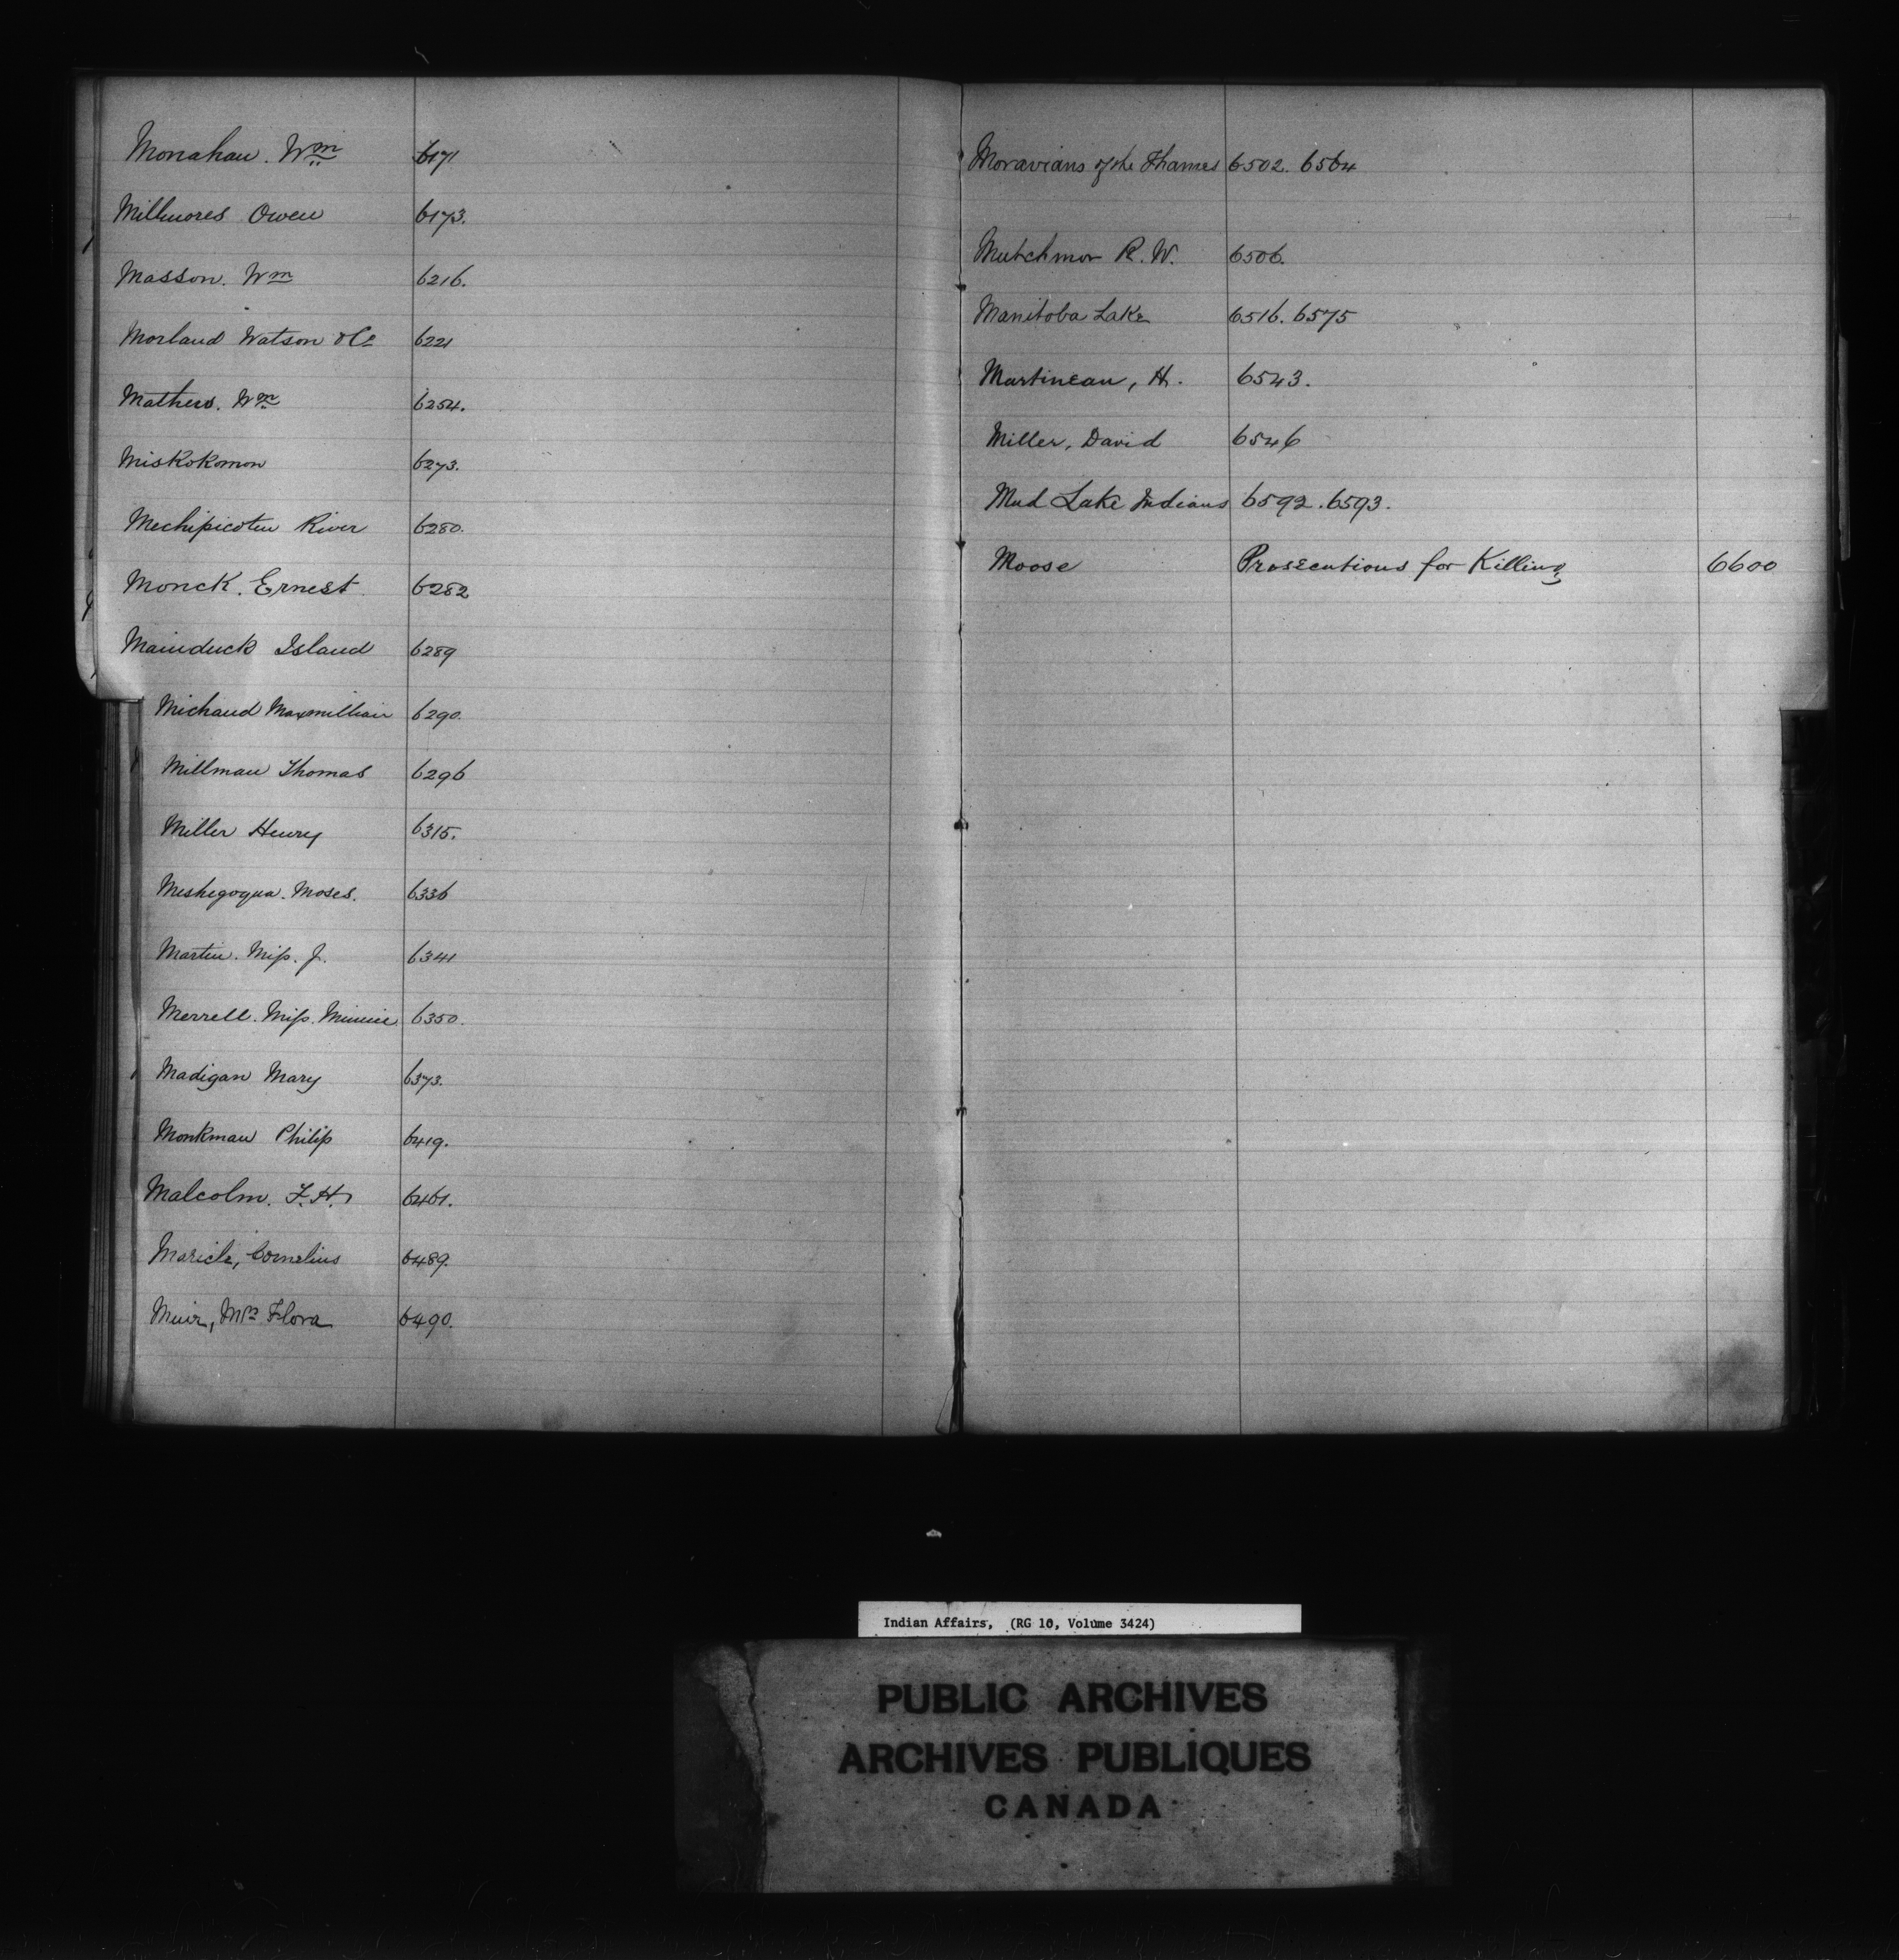 Monahan. Wm 6171
Millmores Owen 6173.
Masson. Wm 6216.
Morland Watson & Co 6221
Mathers. Wm 6254.
Miskokomon 6273.
Mechipicoten River 6280.
Monck. Ernest 6282
Mainduck Island 6289
Michaud Maxmillian 6290.
Millman Thomas 6296
Miller Henry 6315.
Meshegoqua. Moses. 6336
Martin. Miss. J. 6341
Merrell. Miss. Minnie 6350.
Madigan Mary 6373.
Monkman Philip 6419.
Malcolm. F. H. 6461.
Maricle, Cornelius 6489.
Muir, Mrs Flora 6490.
Moravians of the Thames 6502. 6564
Mutchmor R. W. 6506.
Manitoba Lake 6516. 6575
Martineau, H. 6543.
Miller, David 6546
Mud Lake Indians 6592. 6593.
Moose Prosecutions for Killing 6600
Indian Affairs, (RG 10, Volume 3424)
PUBLIC ARCHIVES
ARCHIVES PUBLIQUES
CANADA